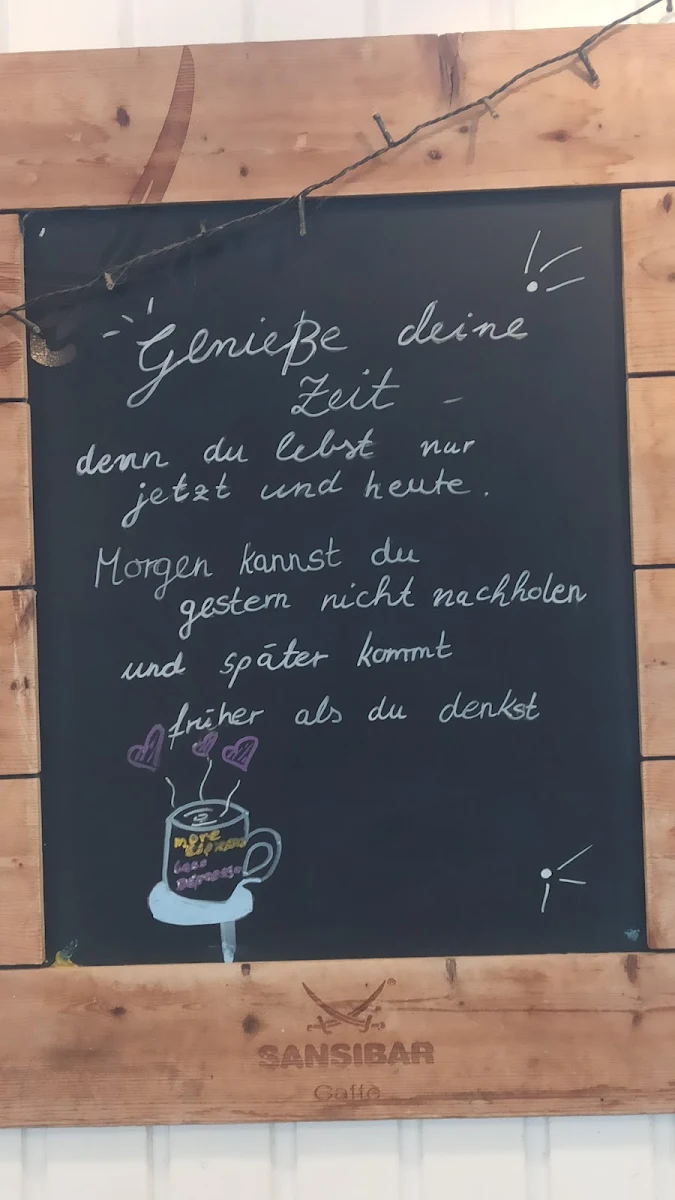 Genieße deine
Zeit -
denn du lebst nur
jetzt und heute.
Morgen kannst du
gestern nicht nachholen
und später kommt
früher als du denkst
more
Espresso
less
Depresso
SANSIBAR
Caffè